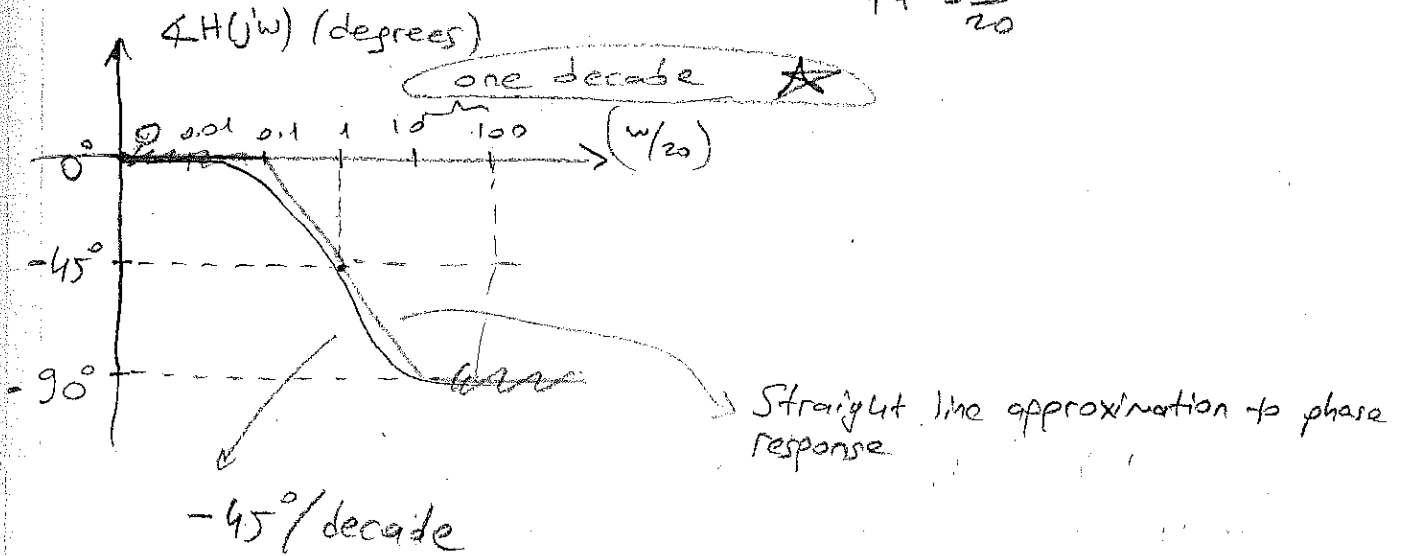 20
∡H(jw) (degrees)
one decade
0 0.01 0.1 1 10 100 (w/20)
0°
-45°
-90°
Straight line approximation to phase
response
-45°/decade